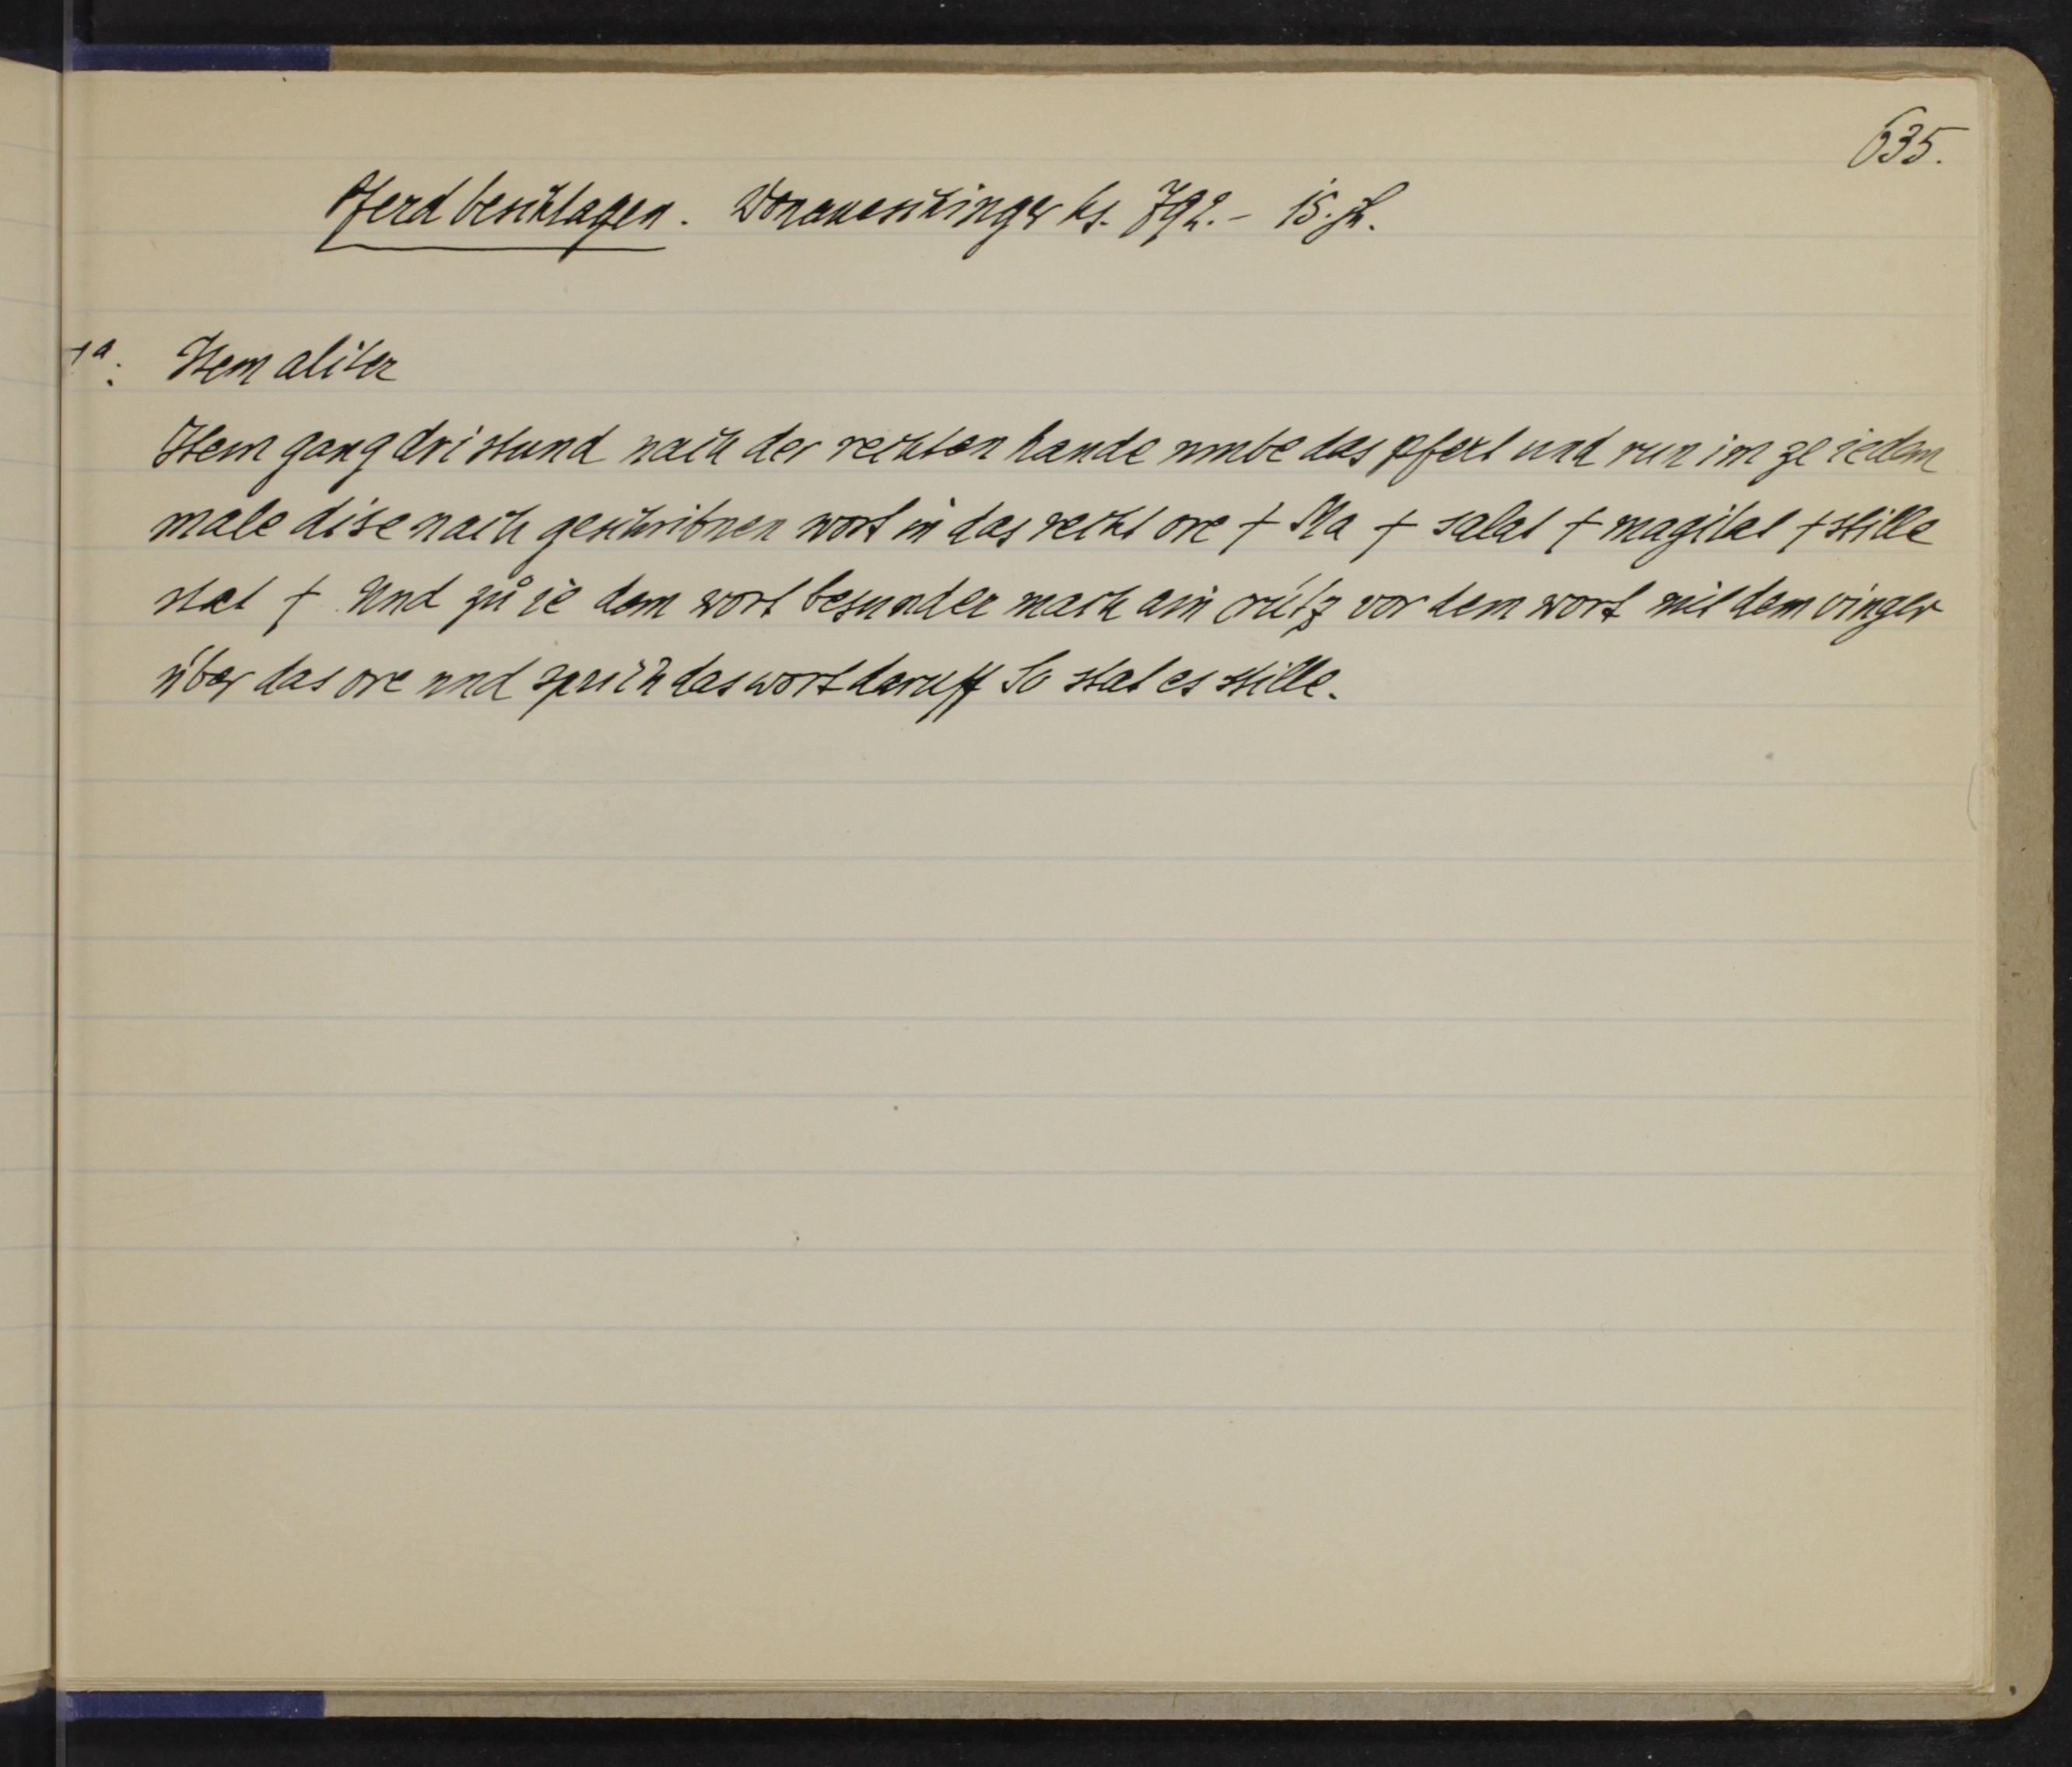 635.
Pferd beschlagen. Donaueschinger hs. 792. - 15. Jh.
a: Item aliter
Item gang dri stund nach der rechten hande umbe das pfert und run im ze iedem
male dise nach geschribnen wort in das recht ore † Na † salat † magitat † stille
stat † Und zů ie dem wort besunder mach ain crútz vor dem wort mit dem vinger
úber das ore und sprich das wort daruff So stat es stille.